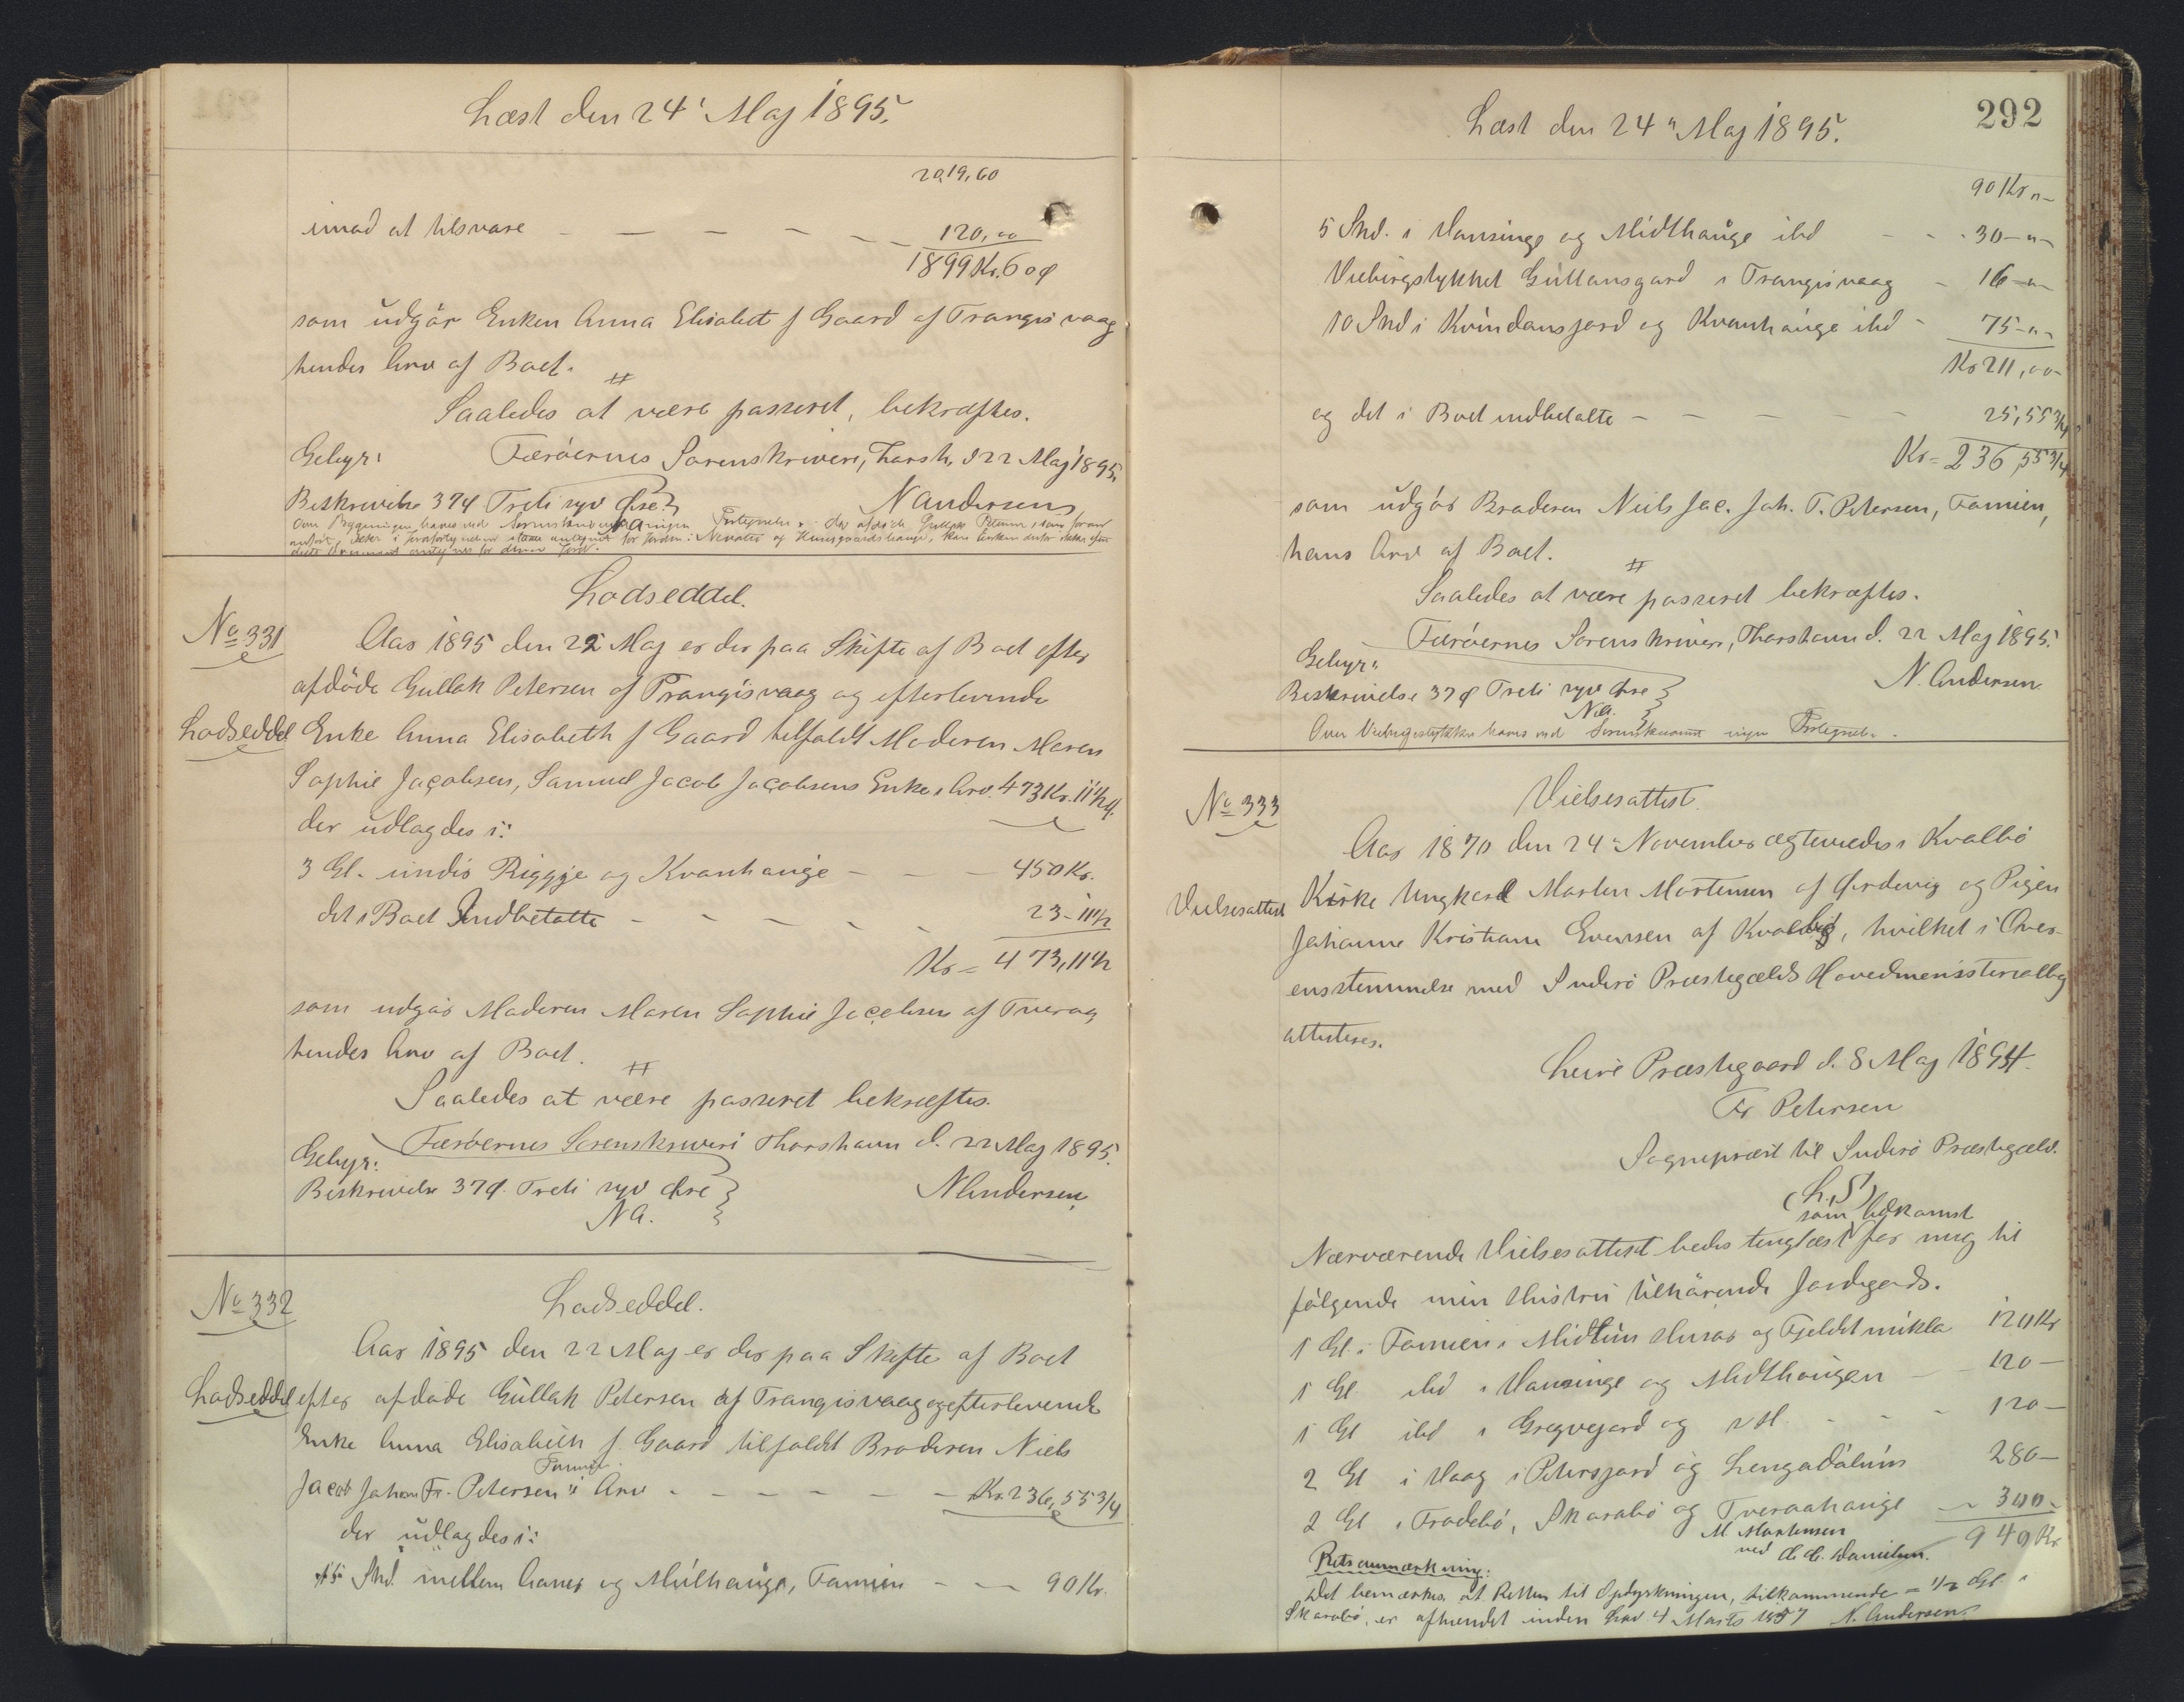 Læst den 24' Maj 1895.
2019,60
imod at tilsvare - - - - - 120,00
1899 Kr. 60 ø
som udgjør Enken Anna Elisabeth f Gaard af Trangisvaag
hendes Arv af Boet.
Saaledes at være passeret, bekræftes.
Færøernes Sorenskriveri, Thorsh. d 22 Maj 1895.
Gebyr:
Beskrivelse 37ø Treti syv Øre
N Andersen
Lodseddel.
No 331
Aar 1895 den 22 Maj er der paa Skifte af Boet efter
afdøde Gullak Petersen af Trangisvaag og efterlevende
Lodseddel
Enke Anna Elisabeth f Gaard tilfaldt Moderen Maren
Sophie Jacobsen, Samuel Jacob Jacobsens Enke i Arv. 473 Kr. 11½ ø.
der udlagdes i:
3 Gl. undir Riggje og Kvanhauge - - - 450 Kr.
det i Boet Indbetalte - - - - 23 - 11½
Kr = 473,11½
som udgjør Moderen Maren Sophie Jacobsen af Tveraa,
hendes Arv af Boet.
Saaledes at være passeret bekræftes.
Færøernes Sorenskriveri Thorshavn d. 22 Maj 1895.
Gebyr:
Beskrivelse 37ø. Treti syv Øre
N.A.
N Andersen
No 332
Lodseddel.
Aar 1895 den 22 Maj er der paa Skifte af Boet
Lodseddel
efter afdøde Gullak Petersen af Trangisvaag og efterlevende
Enke Anna Elisabeth f. Gaard tilfaldt Broderen Niels
Jacob Johan Fr. Petersen i Arv - - - - - Kr. 236,55 3/4
Famien
der udlagdes i:
15 Skd. mellem Aaner og Mulhauge, Famien - - 90 Kr.
292
Læst den 24" Maj 1895.
90 Kr "-
5 Skd. i Vansinge og Midthauge ibd - - - 30 - " -
Vebirgstykket Gullansgard i Trangisvaag - 16 - " -
10 Skd i Kvindansjord og Kvanhauge ibd - 75 - " -
Kr 211,00 -
og det i Boet indbetalte - - - - - 25,55 3/4
Kr = 236,55 3/4
som udgjør Broderen Niels Jac. Joh. F. Petersen, Famien,
hans Arv af Boet.
Saaledes at være passeret bekræftes.
Færøernes Sorenskriveri, Thorshavn d. 22 Maj 1895.
Gebyr:
Beskrivelse 37ø Treti syv Øre
N.A.
N. Andersen
No 333
Vielsesattest.
Aar 1870 den 24" November ægteviedes i Kvalbø
Vielsesattest
Kirke Ungkarl Morten Mortensen af Ørdevig og Pigen
Johanne Kristiane Evensen af Kvalbø, hvilket i Over-
ensstemmelse med Suderø Præstegjælds Hovedministerialbog
attesteres.
Tveire Præstegaard d. 8 Maj 1894.
Fr Petersen
Sognepræst til Suderø Præstegjæld.
(L.S)
som Adkomst
Nærværende Vielsesattest bedes tinglæst for mig til
følgende min Hustru tilhørende Jordegods.
1 Gl. i Famien i Midtun Husar og Fjeldet mikla 120 Kr
1 Gl ibd i Vansinge og Midthaugen - 120 -
1 Gl ibd i Gregvegard og 2 H. - - - 120 -
2 Gl i Vaag i Petersjard og Lengadalum 280 -
2 Gl i Frodebø, Skarabø og Tveraahauge - 300 -
940 Kr
M Mortensen
ved
Danielsen.
Retsanmærkning:
Det bemærkes, at Retten til Opdyrkningen, tilkommende = 1/2 Gl. i
Skarabø, er afhændet inden Lov 4 Marts 1857 N. Andersen